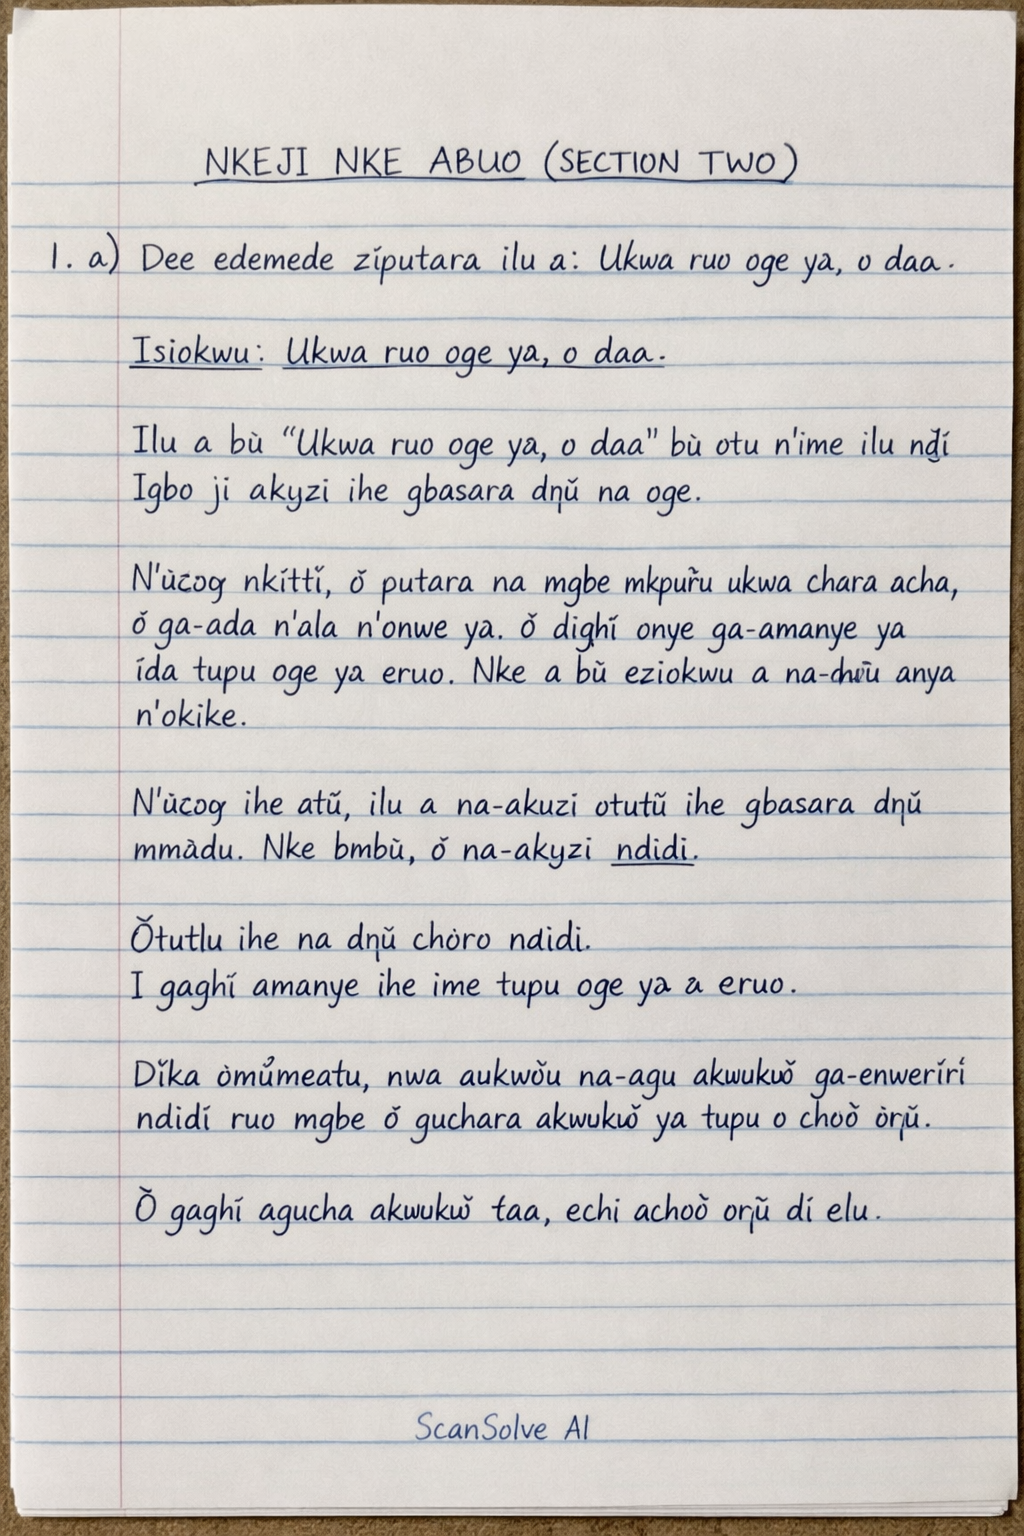 NKEJI NKE ABUO (SECTION TWO)
1. a) Dee edemede zíputara ilu a: Ukwa ruo oge ya, o daa.
Isiokwu: Ukwa ruo oge ya, o daa.
Ilu a bù “Ukwa ruo oge ya, o daa” bù otu n'ime ilu
Igbo ji akyzi ihe gbasara na oge.
N'ùcog nkíttǐ, ǒ putara na mgbe ukwa chara acha,
ǒ ga-ada n'ala n'onwe ya. ǒ dighǐ onye ga-amanye ya
ída tupu oge ya eruo. Nke a bǔ eziokwu a anya
n'okike.
N'ùcog ihe atǔ, ilu a na-akuzi otutǔ ihe gbasara
mmàdu. Nke bmbù, ǒ na-akyzi ndidi.
Ǒtutlu ihe na chòro ndidi.
I gaghǐ amanye ihe ime tupu oge ya a eruo.
Dǐka nwa aukwǒu na-agu ga-enweríri
ndidí ruo mgbe ǒ guchara ya tupu o choǒ
Ǒ gaghǐ agucha taa, echi achoǒ dí elu.
ScanSolve AI